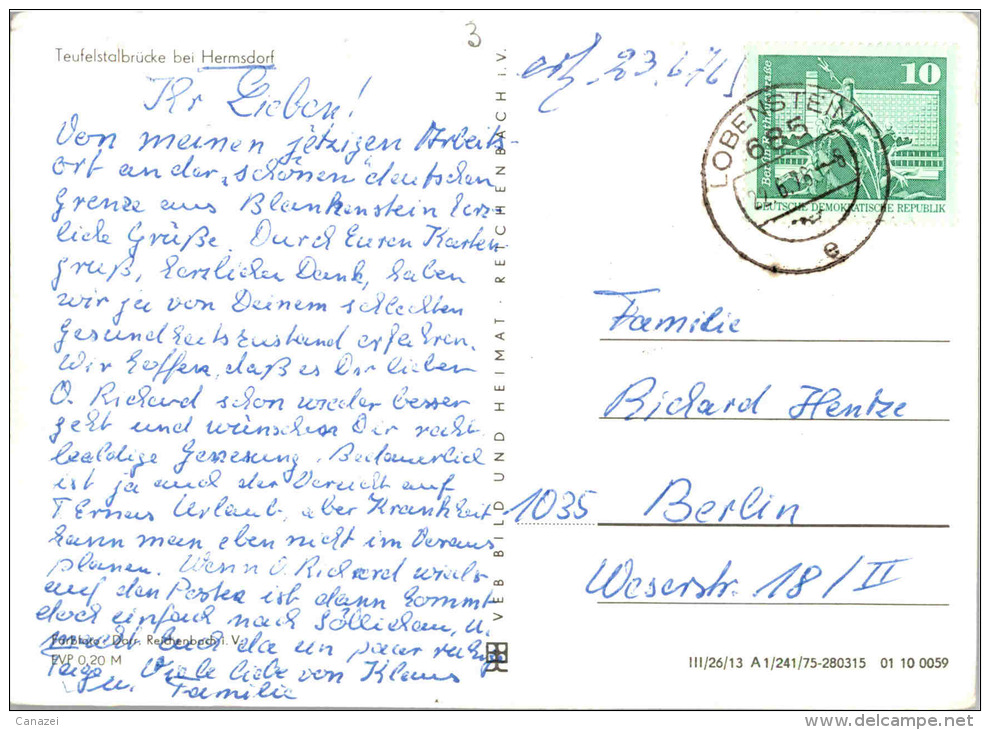 3
Teufelstalbrücke bei Hermsdorf
Ihr Lieben!
Von meinen jetzigen Arbeits-
ort an der „schönen deutschen
Grenze aus Blankenstein herz-
liche Grüße. Durch Euren Karten-
gruß, herzlichen Dank, haben
wir ja von Deinem schlechten
Gesundheitszustand erfahren.
Wir hoffen, daß es Dir lieber
O. Richard schon wieder besser
geht und wünschen Dir recht
baldige Genesung. Bedauerlich
ist ja auch der Verzicht auf
Urlaub, aber Krankheit
kann man eben nicht im Voraus
planen. Wenn O. Richard wieder
auf den Posten ist dann kommt
doch einfach nach Söllichau, u.
macht Euch da ein paar ruhige
Tage. Viele liebe von Klaus
u. Familie
Farbfoto: Darr, Reichenbach i. V.
EVP 0,20 M
VEB BILD UND HEIMAT · REICHENBACH I.V.
erh. 23.6.76
10
DEUTSCHE DEMOKRATISCHE REPUBLIK
LOBENSTEIN
685
e
Familie
Richard Hentze
1035 Berlin
Weserstr. 18/II
III/26/13 A 1/241/75-280315 01 10 0059
Canazei
www.delcampe.net